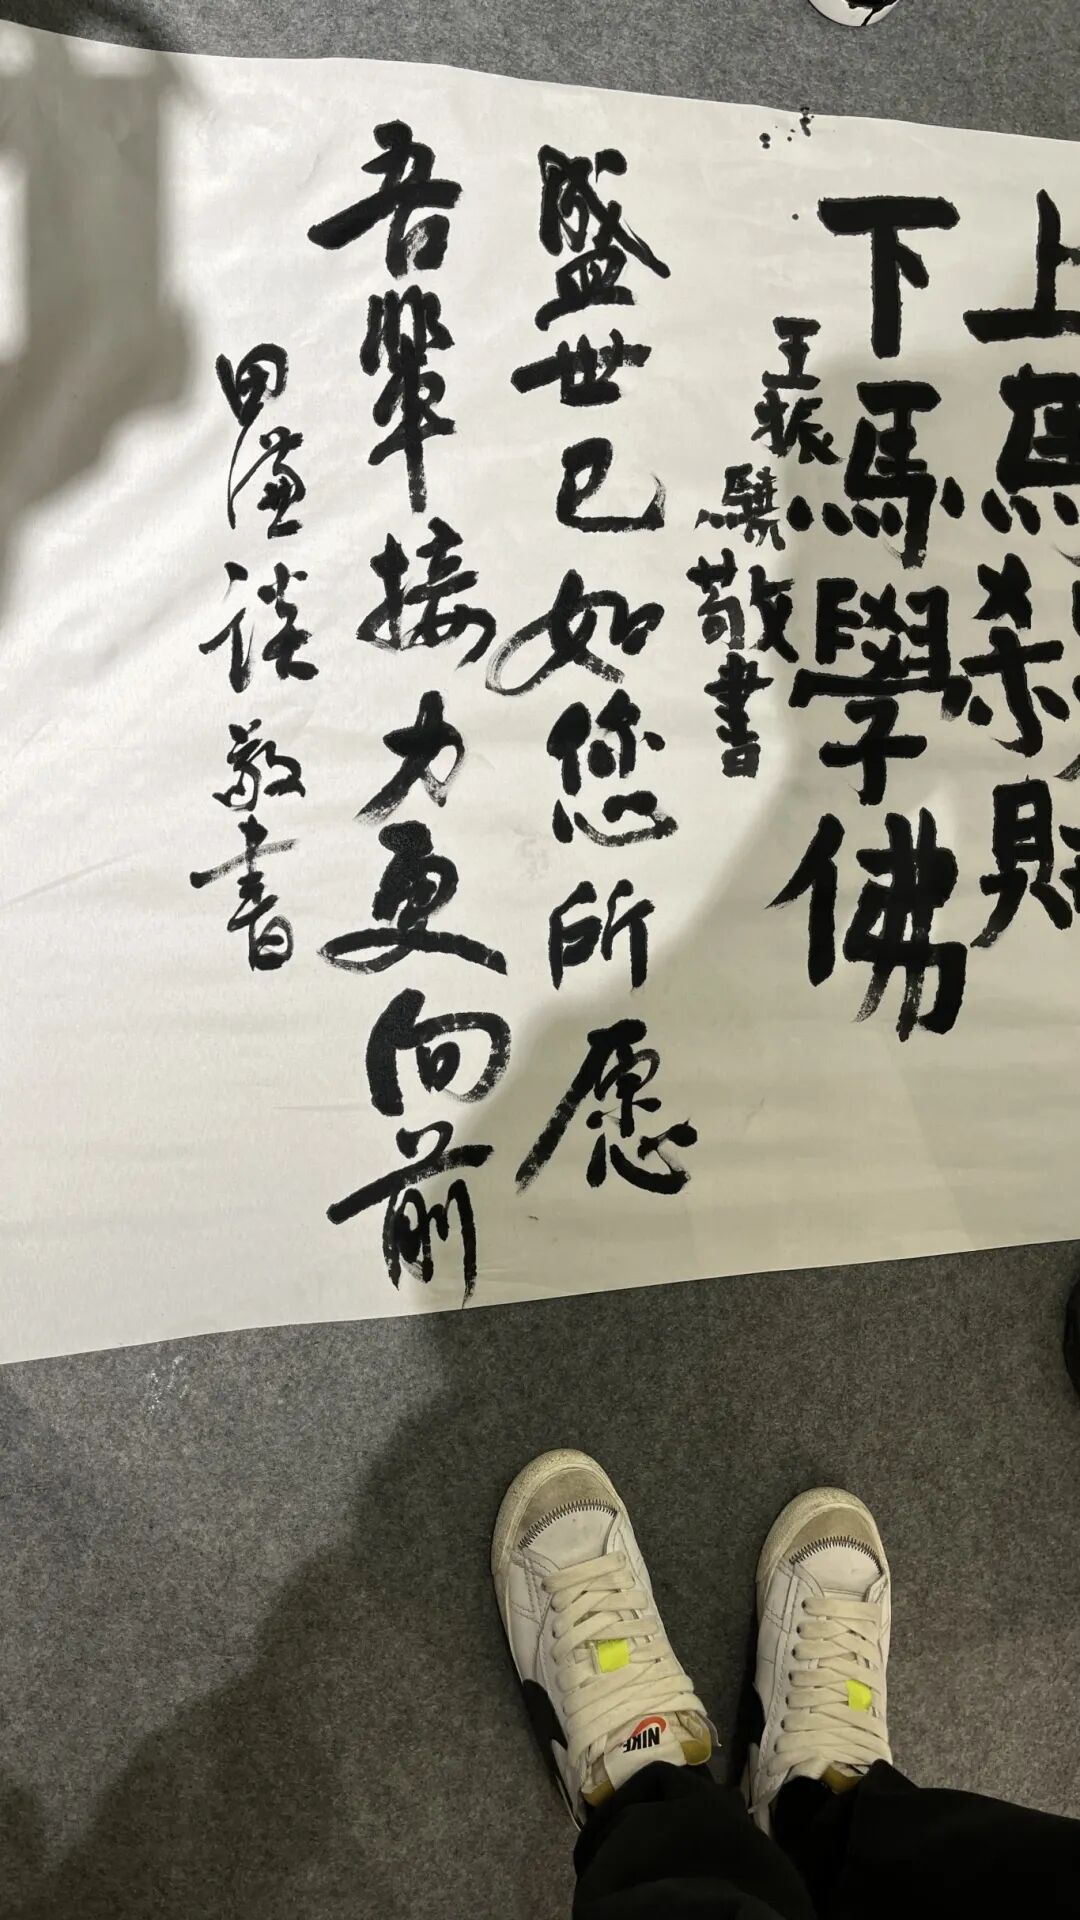 上馬杀贼
下馬學佛
王振驥敬書
盛世已如您所愿
吾辈接力更向前
田谦谈敬書
NIKE